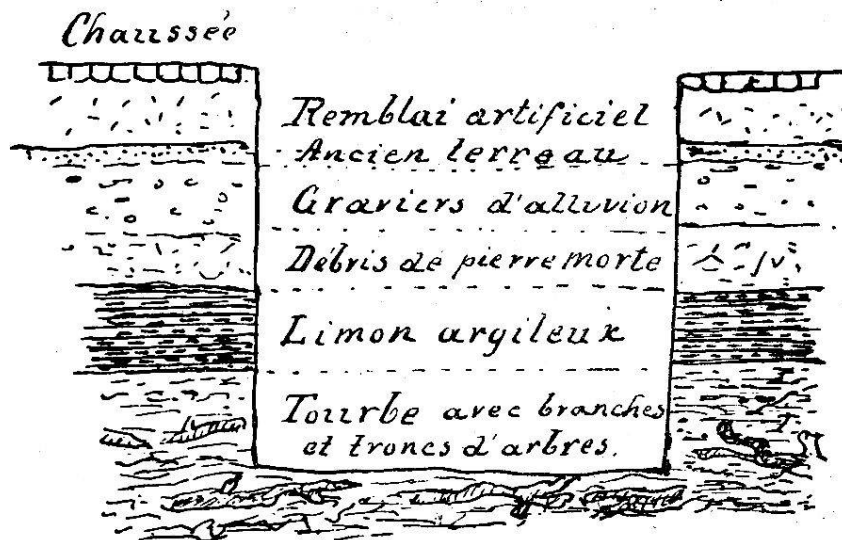 Chaussée
Remblai artificiel
Ancien terreau
Graviers d'alluvion
Débris de pierre morte
Limon argileux
Tourbe avec branches
et troncs d'arbres.